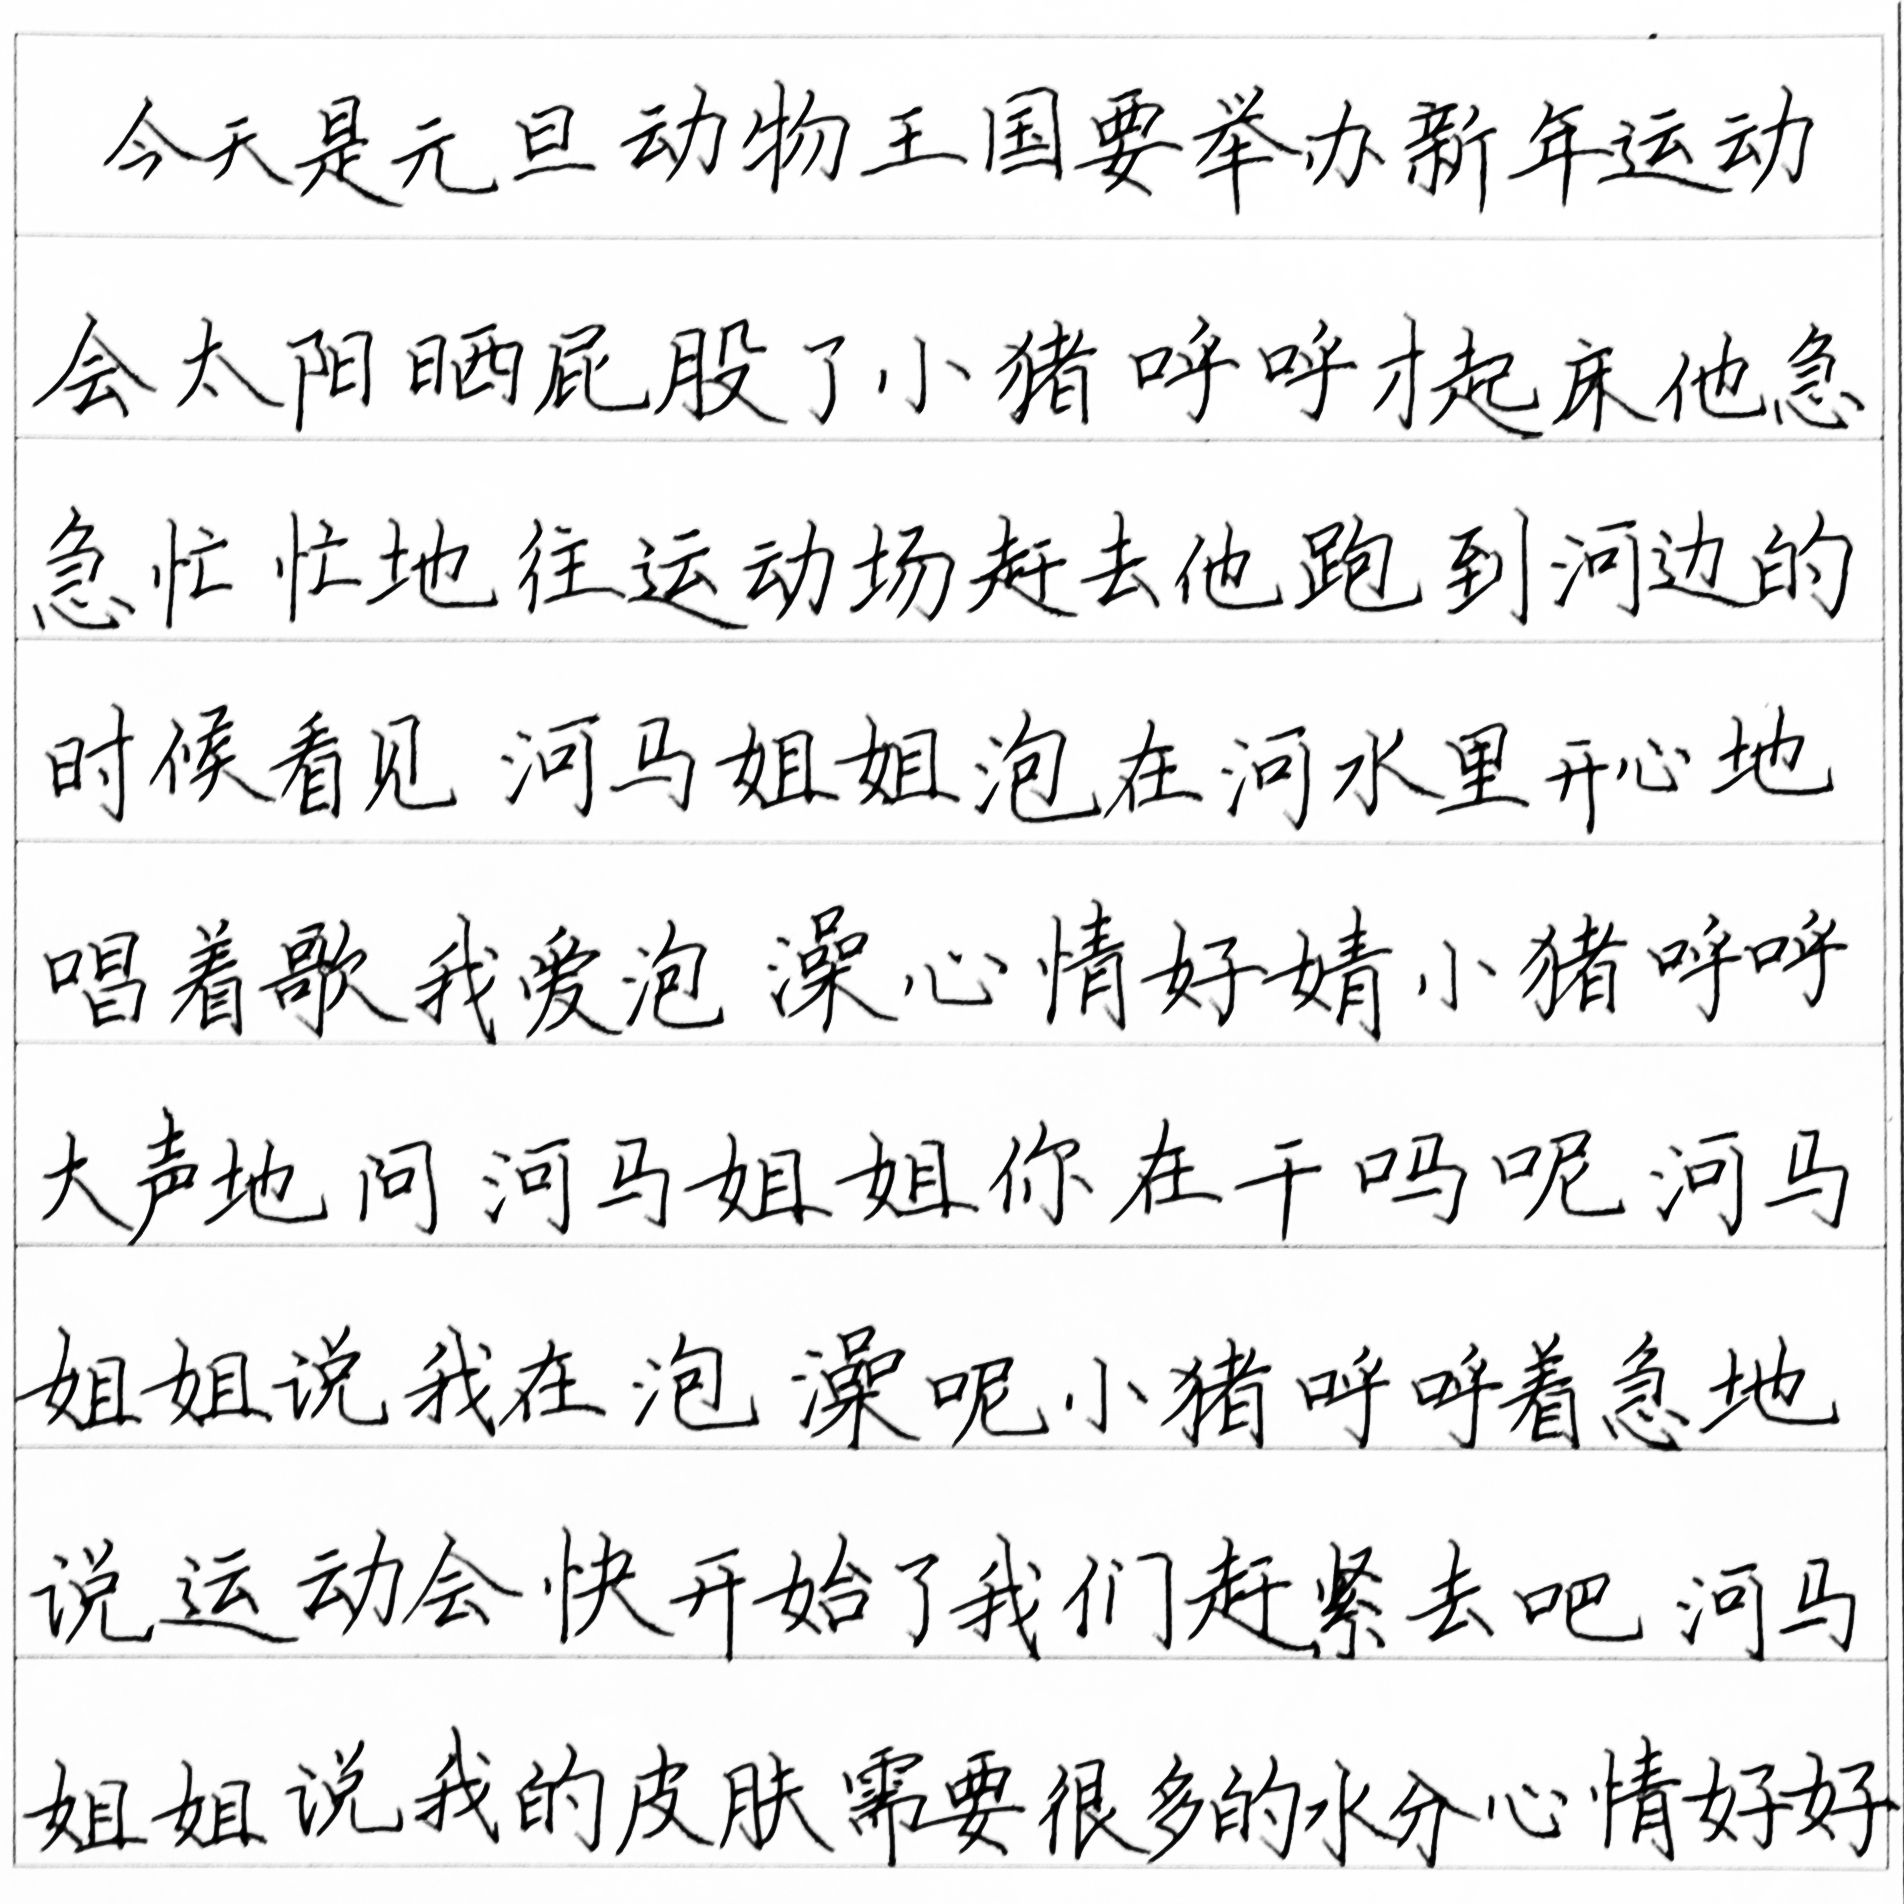 今天是元旦动物王国要举办新年运动
会太阳晒屁股了小猪呼呼才起床他急
急忙忙地往运动场赶去他跑到河边的
时候看见河马姐姐泡在河水里开心地
唱着歌我爱泡澡心情好婧小猪呼呼
大声地问河马姐姐你在干吗呢河马
姐姐说我在泡澡呢小猪呼呼着急地
说运动会快开始了我们赶紧去吧河马
姐姐说我的皮肤需要很多的水分心情好好